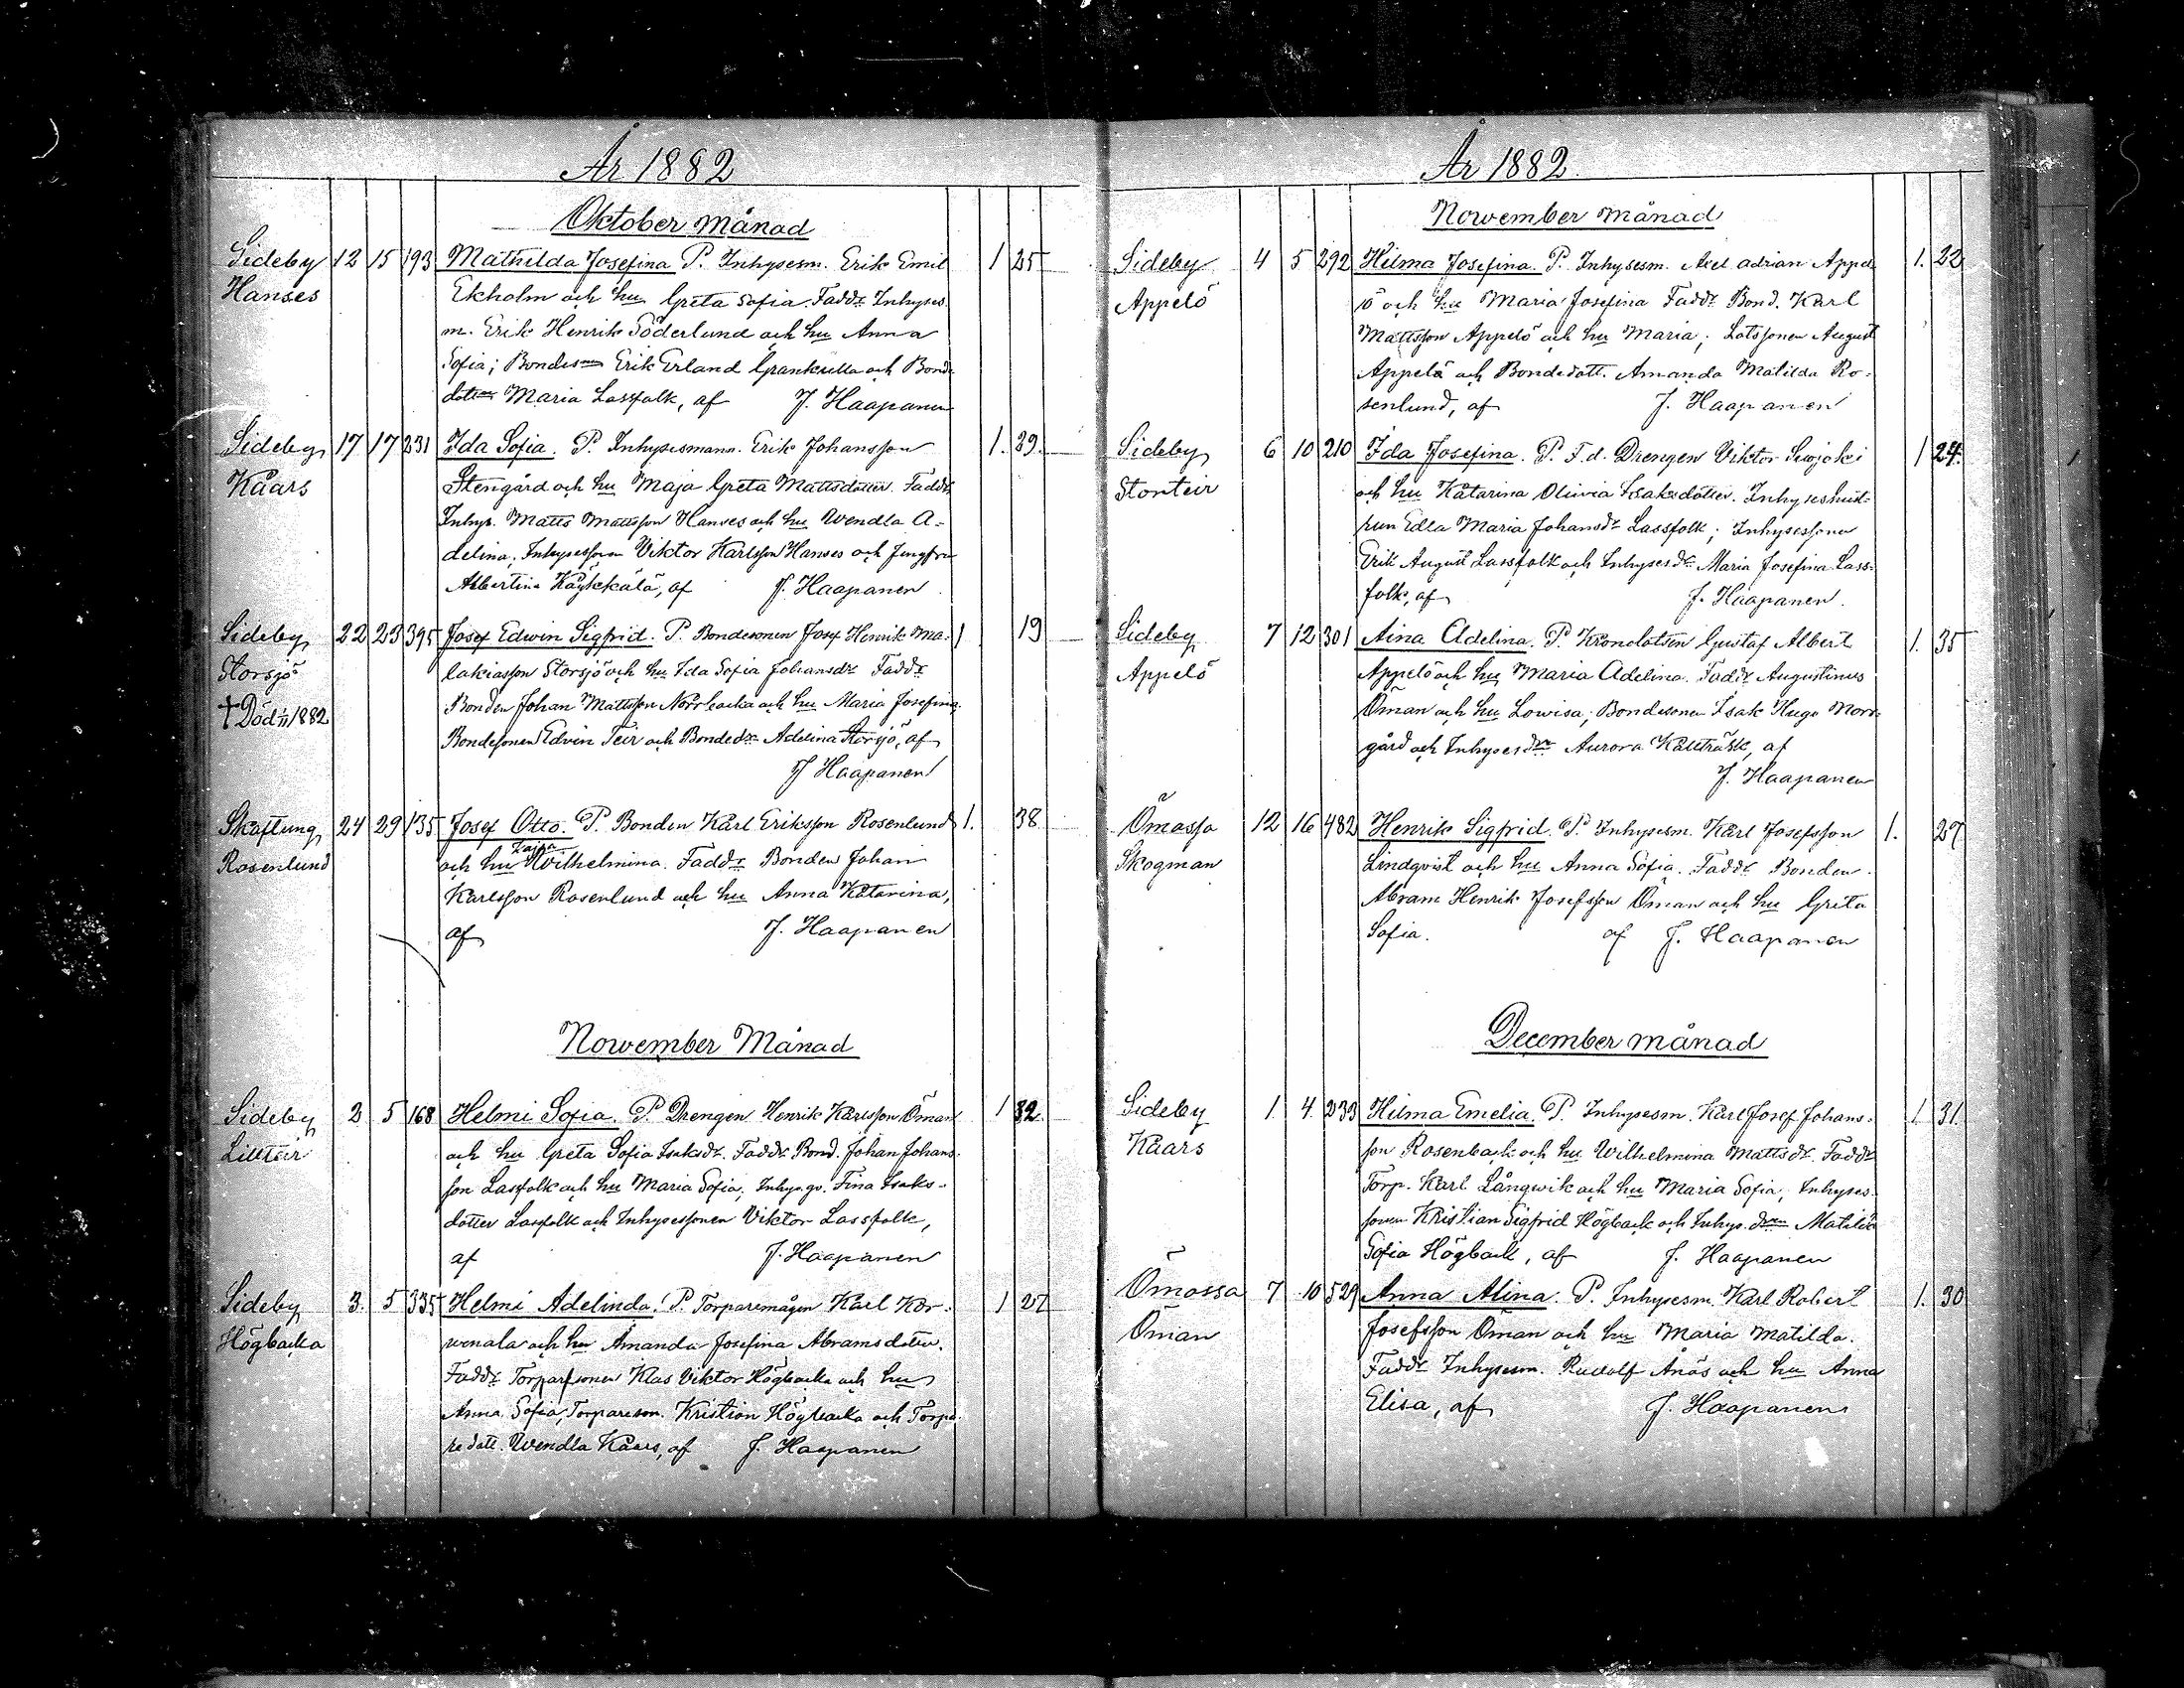 År 1882
Oktober månad
Sideby 12 15 193 Mathilda Josefina P. Inhysesm. Erik Emil 1 25
Hanses Ekholm och hu Greta Sofia. Faddr Inhyses
m. Erik Henrik Söderlund och hu Anna
Sofia; Bondeson Erik Erland Grankulla och Bond
dottren Maria Lassfolk, af J. Haapanen
Sideby 17 17 231 Ida Sofia. P. Inhysesmann. Erik Johansson 1. 39.
Kåårs Stengård och hu Maja Greta Mattsdotter. Faddr
Inhys. Matts Mattsson Hanses och hu Wendla A-
delina; Inhysessonen Viktor Karlsson Hanses och Jungfru
Albertina af J. Haapanen
Sideby 22 23 395 Josef Edwin Sigfrid. P. Bondesonen Josef Henrik Ma- 1 19
Storsjö lakiasson Storsjö och hu Ida Sofia Johansdr Faddr
† Död 1882 Bonden Johan Mattsson Norrbacka och hu Maria Josefina
Bondesonen Edvin Teir och Bondedr Adelina Storsjö, af
J Haapanen
Skaftung 24 29 135 Josef Otto. P. Bonden Karl Eriksson Rosenlund 1. 38
Rosenlund och hu Kajsa Wilhelmina. Faddr Bonden Johan
Karlsson Rosenlund och hu Anna Katarina,
af J. Haapanen
November Månad
Sideby 2 5 168 Helmi Sofia. P. Drengen Henrik Karlsson Öman 1 32
Lillteir och hu Greta Sofia Isaksdr. Faddr Bond. Johan Johans-
son Lassfolk och hu Maria Sofia; Inhys.qv. Fina Isaks-
dotter Lassfolk och Inhysessonen Viktor Lassfolk,
af J. Haapanen
Sideby 3. 5 335 Helmi Adelinda. P. Torparemågen Karl Kor- 1 27
Högbacka wenala och hu Amanda Josefina Abramsdotter.
Faddr Torparsonen Klas Viktor Högbacka och hu
Anna Sofia, Torpareson. Kristian Högbacka och Torpa
re dott. Wendla Kåårs, af J. Haapanen
År 1882.
November månad
Sideby 4 5 292 Hilma Josefina. P. Inhysesm. Axel Adrian Appel 1. 22
Appelö ö och hu Maria Josefina Faddr Bond. Karl
Mattsson Appelö och hu Maria; Lotssonen August
Appelö och Bondedott. Amanda Matilda Ro-
senlund, af J. Haapanen
Sideby 6 10 210 Ida Josefina. P. F.d. Drengen Viktor 1 24.
Storteir och hu Katarina Olivia Isaksdotter. Inhyseshust-
run Edla Maria Johansdr Lassfolk; Inhysessonen
Erik August Lassfolk och Inhysesdr Maria Josefina Lass-
folk, af J. Haapanen.
Sideby 7 12 301 Aina Adelina. P. Kronolotsen Gustaf Albert 1. 35
Appelö Appelö och hu Maria Adelina. Faddr Augustinus
Öman och hu Lowisa; Bondesonen Isak Hugo Norr-
gård och Inhysesdr Aurora Källträsk, af
J. Haapanen
Ömossa 12 16 482 Henrik Sigfrid. P. Inhysesm. Karl Josefsson 1. 27
Skogman Lindqvist och hu Anna Sofia. Faddr Bonden
Abram Henrik Josefsson Öman och hu Greta
Sofia. af J. Haapanen
December månad
Sideby 1. 4. 233 Hilma Emelia. P. Inhysesm. Karl Josef Johans- 1. 31.
Kåårs son Rosenback och hu Wilhelmina Mattsdr. Faddr
Torp. Karl Långwik och hu Maria Sofia; Inhyses-
sonen Kristian Sigfrid Högback och Inhys.dren Matilda
Sofia Högback, af J. Haapanen
Ömossa 7 10 529 Anna Alina. P. Inhysesm. Karl Robert 1. 30
Öman Josefsson Öman och hu Maria Matilda.
Faddr Inhysesm. Rudolf Ånäs och hu Anna
Elisa, af J. Haapanen